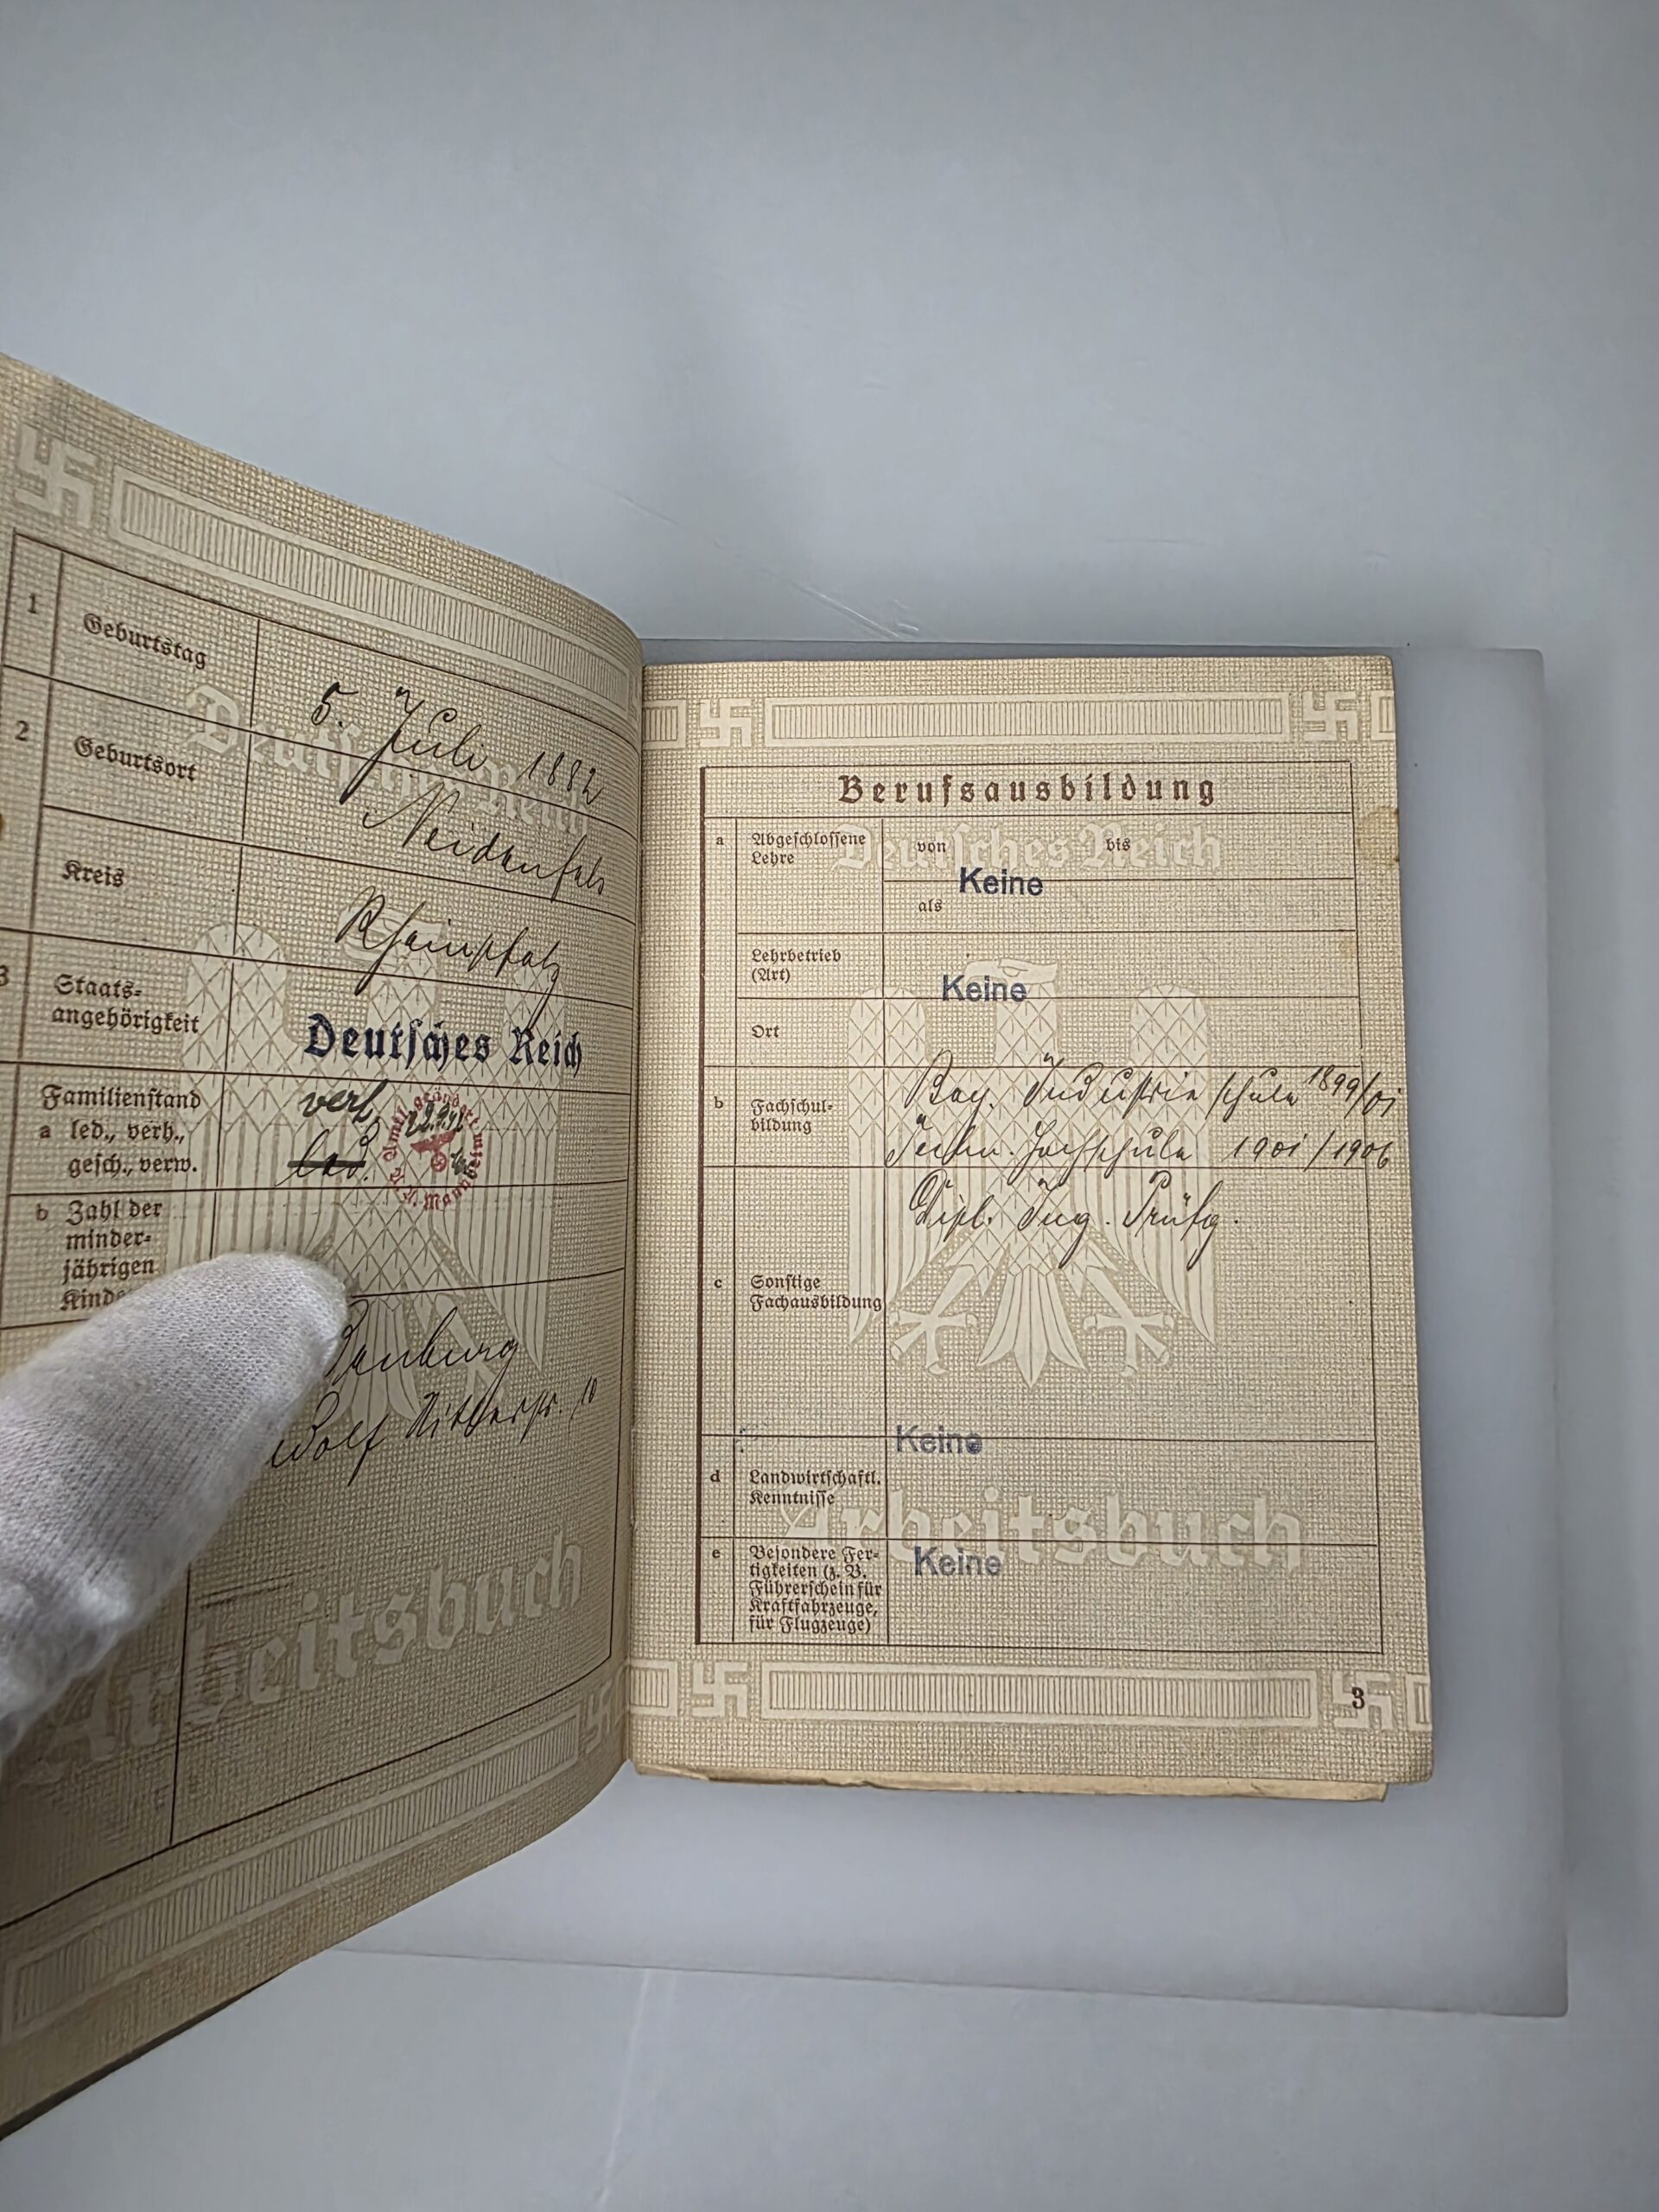 1 Geburtstag 5. Juli 1882
2 Geburtsort Neidenfels
Kreis Rheinpfalz
3 Staats-
angehörigkeit Deutsches Reich
Familienstand verh.
a led., verh., led.
gesch., verw.
b Zahl der
minder-
jährigen
Kind
enburg
dolf Hitlerstr. 10
Deutsches Reich
Arbeitsbuch
Berufsausbildung
a Abgeschlossene
Lehre
von bis
Keine
als
Lehrbetrieb
(Art)
Keine
Ort
b Fachschul-
bildung
Bay. Industrieschule 1899/01
Techn. Hochschule 1901/1906
Dipl. Ing. Prüfg.
c Sonstige
Fachausbildung
Keine
d Landwirtschaftl.
Kenntnisse
e Besondere Fer-
tigkeiten (z. B.
Führerschein für
Kraftfahrzeuge,
für Flugzeuge)
Keine
Deutsches Reich
Arbeitsbuch
3